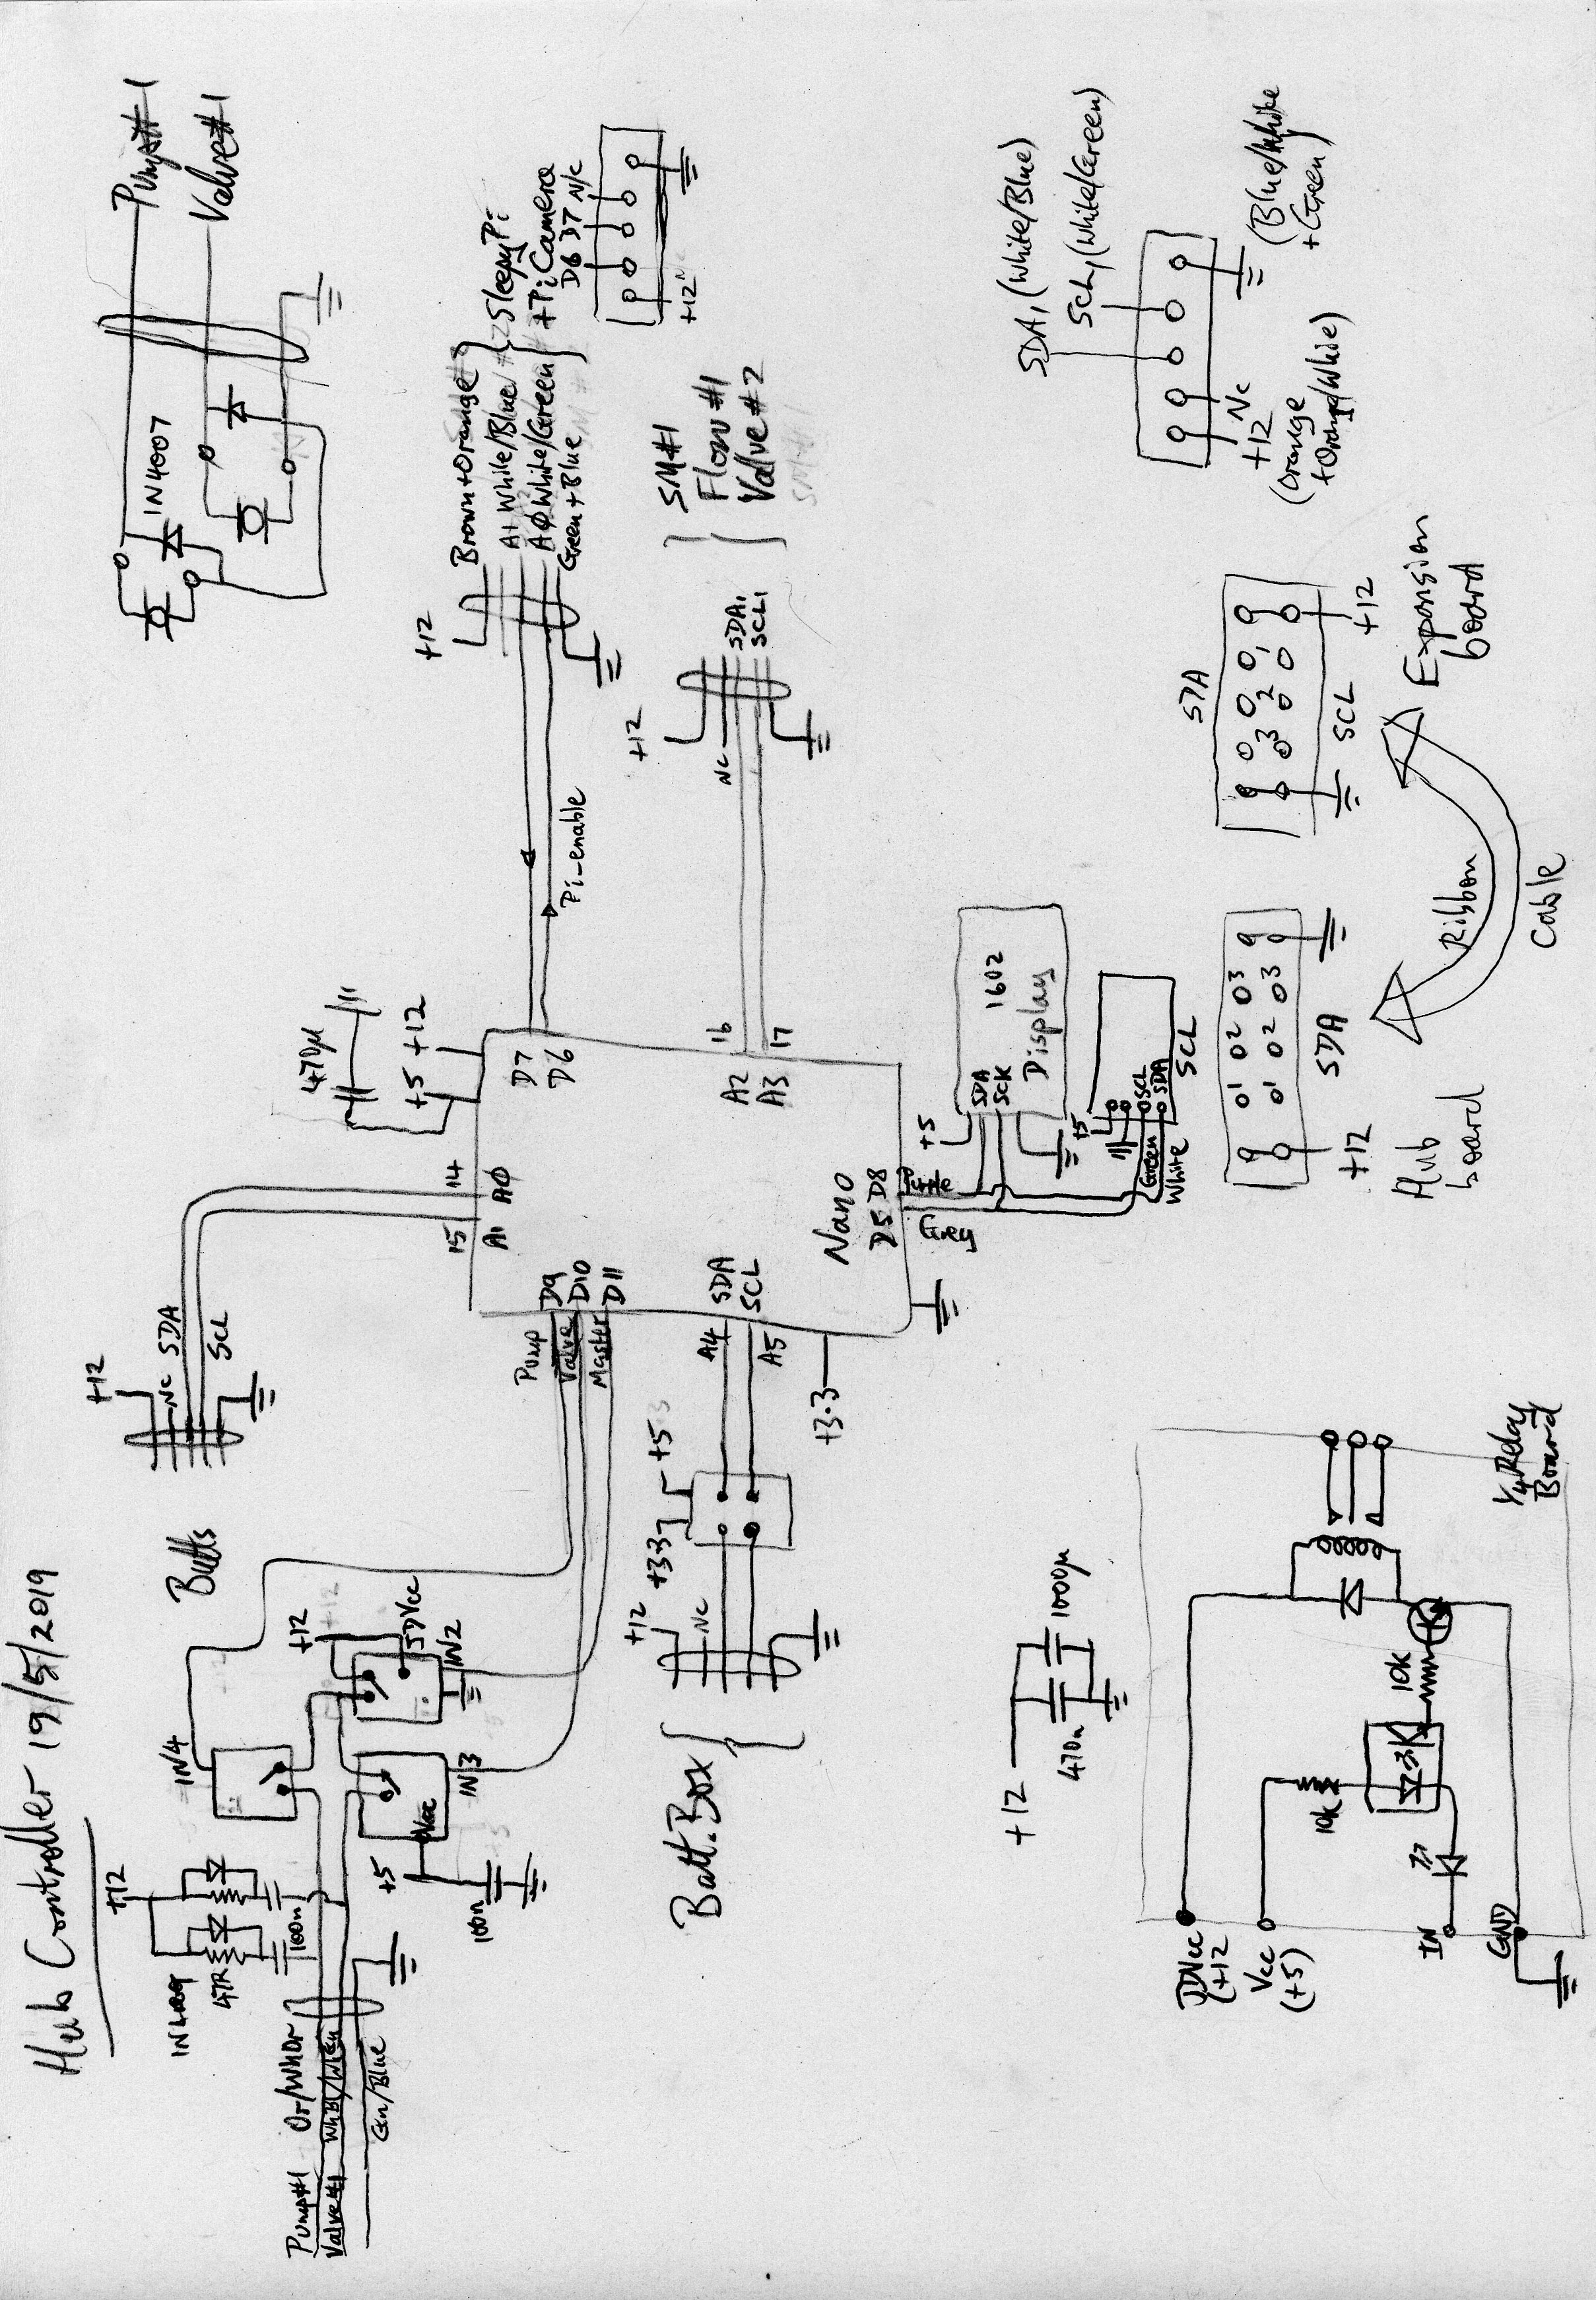 Hub Controller 19/5/2019
+12
IN4007
47R
100n
Pump#1 Or/WhOr
Valve#1 WhBl/WhGn
Gn/Blue
+5
100n
Vcc
IN4
IN3
IN2
JDVcc
+12
Butts
+12
NC
SDA
SCL
15
14
A1
A0
470µ
+5
+12
D7
D6
Pi-enable
+12
Brown+Orange
A1 White/Blue
A0 White/Green
Green+Blue
SleepyPi
+Pi Camera
D6 D7 N/C
+12
IN4007
Pump#1
Valve#1
D9
D10
D11
Pump
Valve
Master
SDA
SCL
A4
A5
+3.3
Nano
D5 D8
Purple
Grey
A2
A3
16
17
NC
+12
SDA1
SCL1
SM#1
Flow#1
Valve#2
Batt.Box
+12
NC
+3.3
+5
+5
SDA
SCK
1602
Display
+5
SCL
SDA
Green
White
+12
470n
1000µ
SDA1 (White/Blue)
SCL1 (White/Green)
NC
+12
(Orange
+Orange/White)
(Blue/White
+Green)
SCL
1 2 3
1 2 3
SDA
+12
Hub
board
Ribbon
Cable
SDA
3 2 1
SCL
+12
Expansion
board
JDVcc
(+12
Vcc
(+5)
IN
GND
10k
10k
1/4 Relay
Board